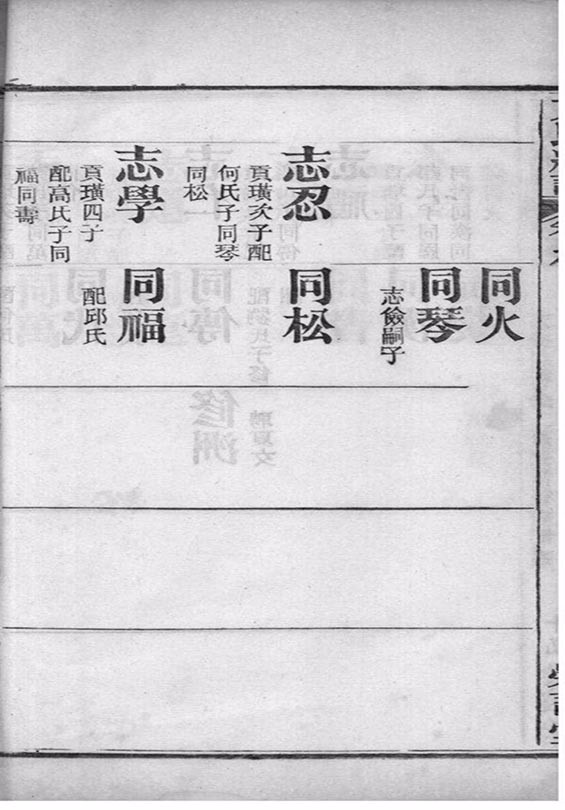 志忍
貢璜次子配
何氏子同琴
同松
志學
貢璜四子
配高氏子同
福同壽
同火
同琴
志儉嗣子
同松
同福
配邱氏